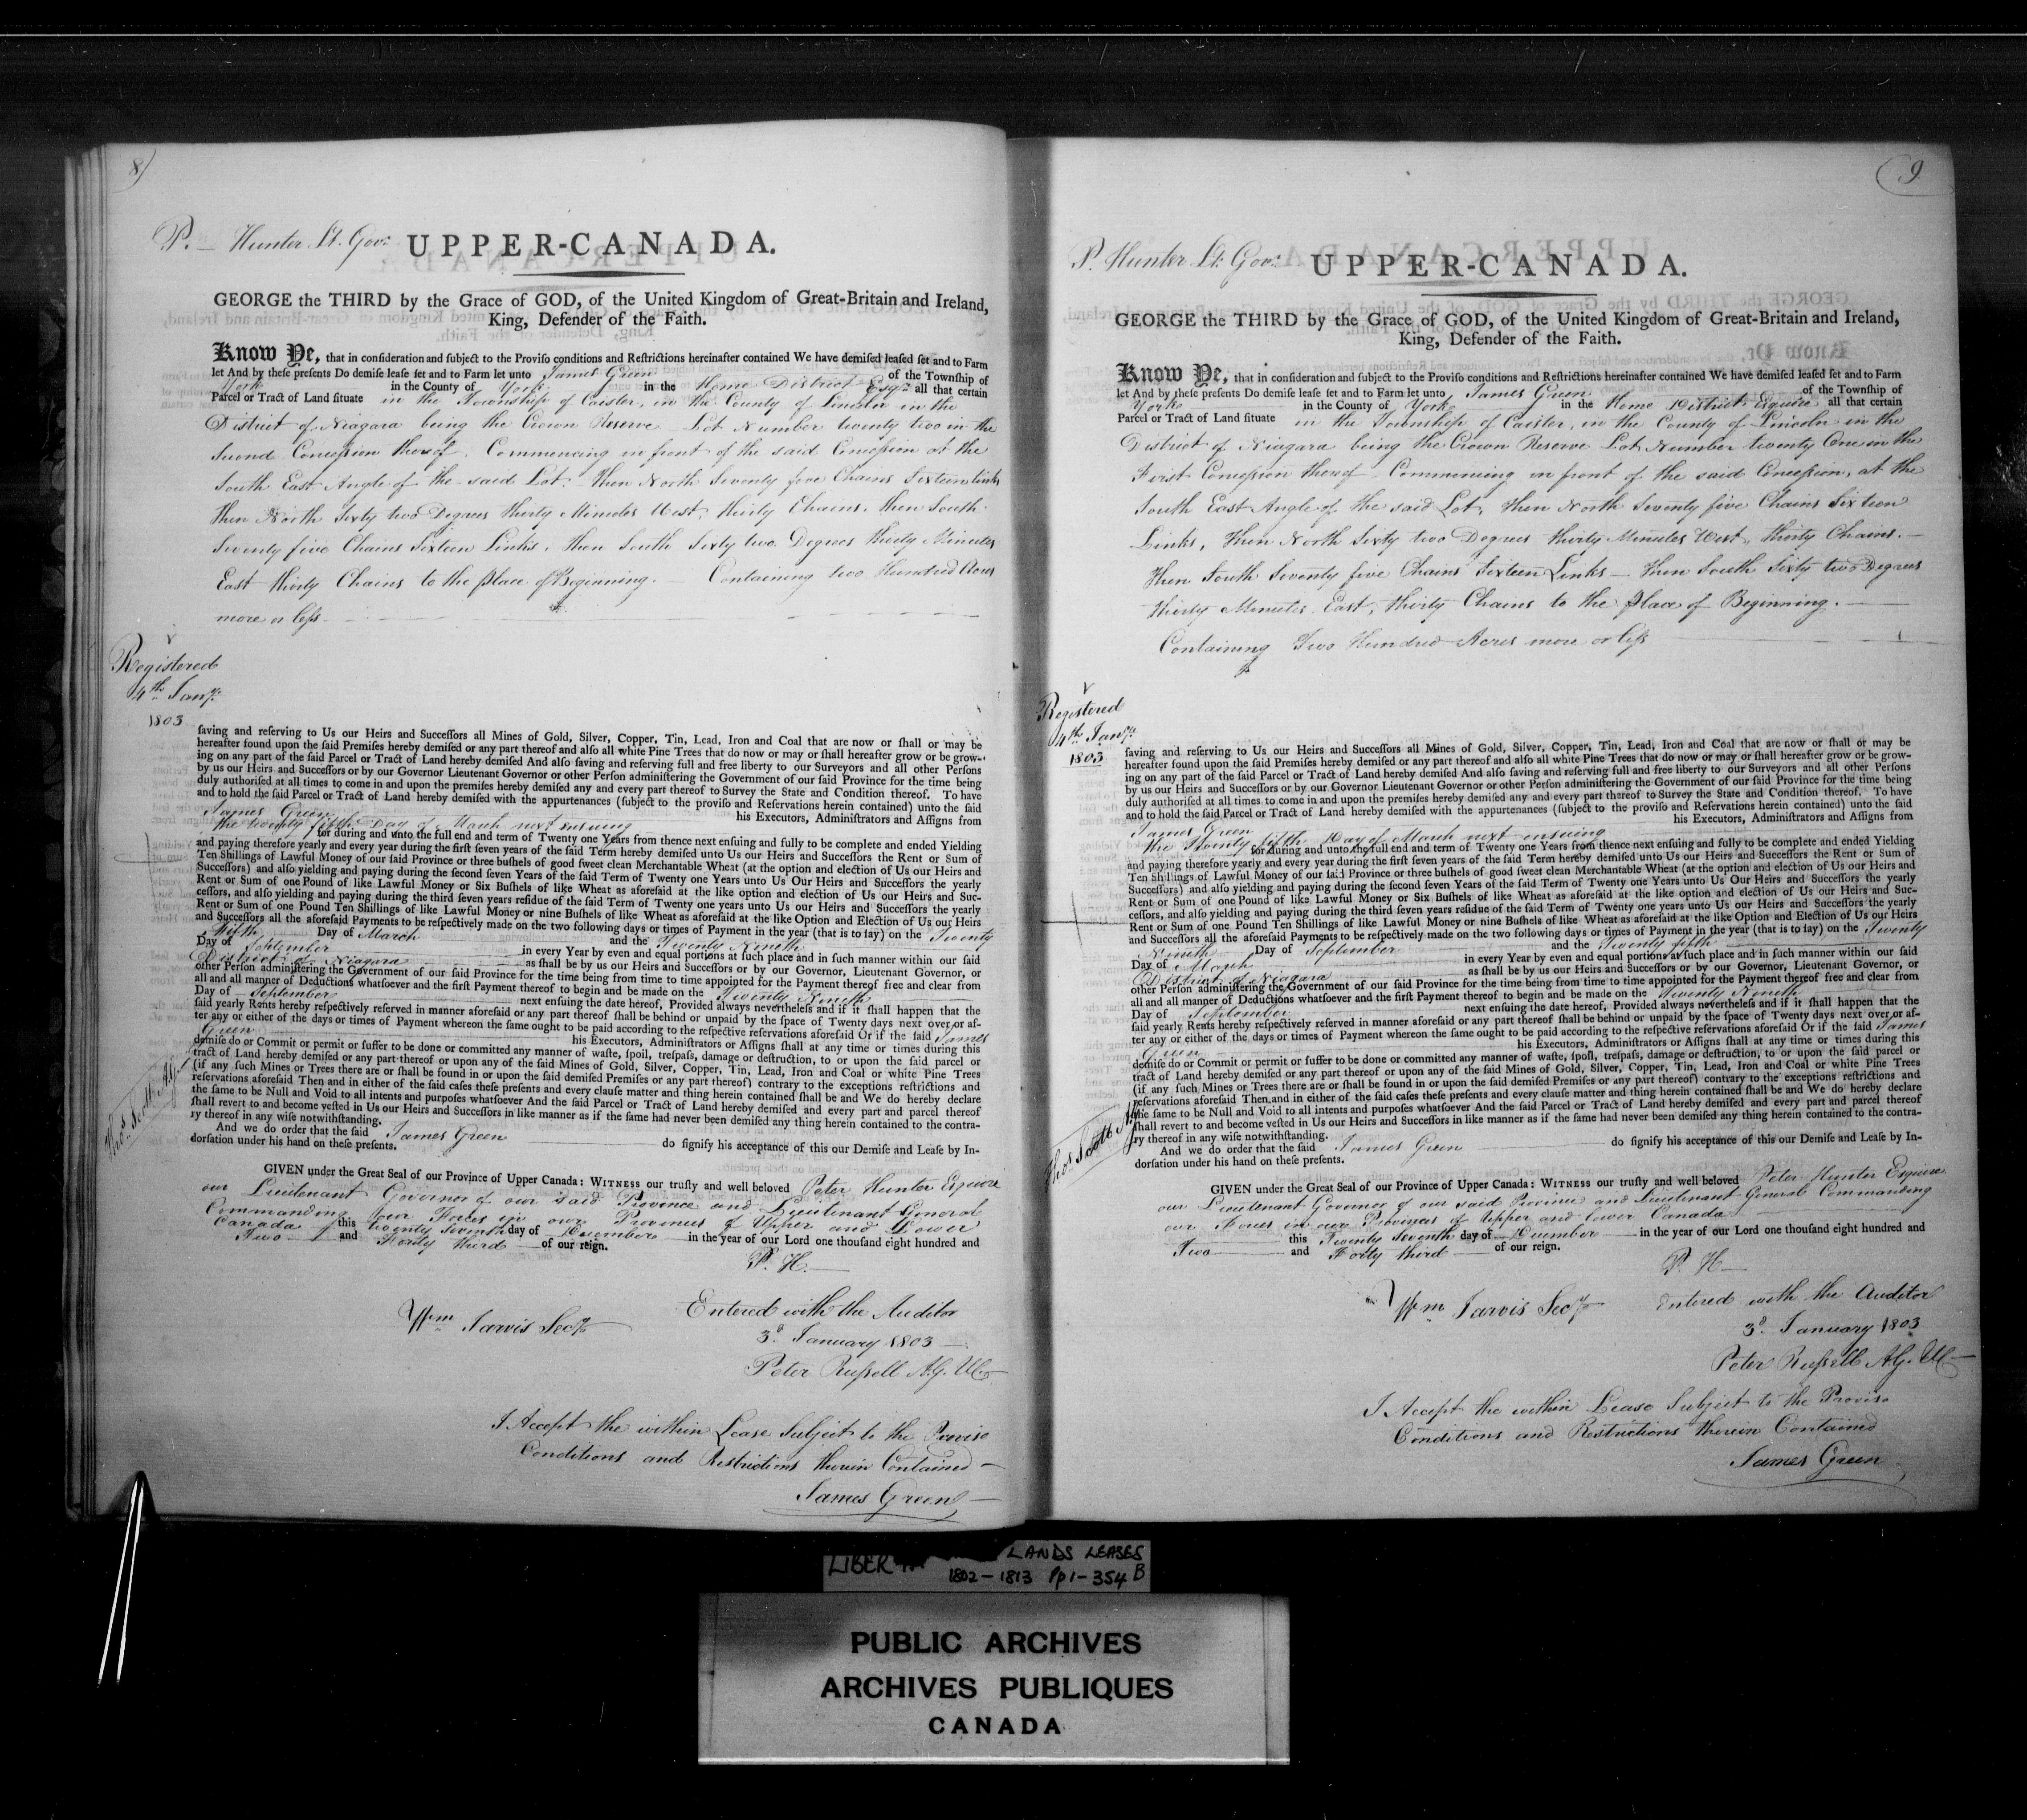 8)
P. — Hunter Lt. Govr.
UPPER-CANADA.
GEORGE the THIRD by the Grace of GOD, of the United Kingdom of Great-Britain and Ireland,
King, Defender of the Faith.
Know Ye, that in consideration and subject to the Proviso conditions and Restrictions hereinafter contained We have demised leased set and to Farm
let And by these presents Do demise lease set and to Farm let unto James Green of the Township of
York in the County of York in the Home District Esqr. all that certain
Parcel or Tract of Land situate in the Township of Caistor, in the County of Lincoln in the
District of Niagara being the Crown Reserve Lot Number twenty two in the
Second Concession thereof, Commencing in front of the said Concession at the
South East Angle of the said Lot. Then North Seventy five Chains Sixteen links
then North Sixty two Degrees thirty Minutes West, thirty Chains, then South
Seventy five Chains Sixteen Links, then South Sixty two Degrees thirty Minutes
East thirty Chains to the place of Beginning. Containing two Hundred Acres
more or less
Registered
4th Jany.
1803
saving and reserving to Us our Heirs and Successors all Mines of Gold, Silver, Copper, Tin, Lead, Iron and Coal that are now or shall or may be
hereafter found upon the said Premises hereby demised or any part thereof and also all white Pine Trees that do now or may or shall hereafter grow or be grow-
ing on any part of the said Parcel or Tract of Land hereby demised And also saving and reserving full and free liberty to our Surveyors and all other Persons
by us our Heirs and Successors or by our Governor Lieutenant Governor or other Person administering the Government of our said Province for the time being
duly authorised at all times to come in and upon the premises hereby demised any and every part thereof to Survey the State and Condition thereof. To have
and to hold the said Parcel or Tract of Land hereby demised with the appurtenances (subject to the proviso and Reservations herein contained) unto the said
James Green his Executors, Administrators and Assigns from
the twenty fifth Day of March next ensuing
for during and unto the full end and term of Twenty one Years from thence next ensuing and fully to be complete and ended Yielding
and paying therefore yearly and every year during the first seven years of the said Term hereby demised unto Us our Heirs and Successors the Rent or Sum of
Ten Shillings of Lawful Money of our said Province or three bushels of good sweet clean Merchantable Wheat (at the option and election of Us our Heirs and
Successors) and also yielding and paying during the second seven Years of the said Term of Twenty one Years unto Us Our Heirs and Successors the yearly
Rent or Sum of one Pound of like Lawful Money or Six Bushels of like Wheat as aforesaid at the like option and election of Us our Heirs and Suc-
cessors, and also yielding and paying during the third seven years residue of the said Term of Twenty one years unto Us our Heirs and Successors the yearly
Rent or Sum of one Pound Ten Shillings of like Lawful Money or nine Bushels of like Wheat as aforesaid at the like Option and Election of Us our Heirs
and Successors all the aforesaid Payments to be respectively made on the two following days or times of Payment in the year (that is to say) on the Twenty
fifth Day of March and the Twenty Nineth
Day of September in every Year by even and equal portions at such place and in such manner within our said
District of Niagara as shall be by us our Heirs and Successors or by our Governor, Lieutenant Governor, or
other Person administering the Government of our said Province for the time being from time to time appointed for the Payment thereof free and clear from
all and all manner of Deductions whatsoever and the first Payment thereof to begin and be made on the Twenty Nineth
Day of September next ensuing the date hereof, Provided always nevertheless and if it shall happen that the
said yearly Rents hereby respectively reserved in manner aforesaid or any part thereof shall be behind or unpaid by the space of Twenty days next over or af-
ter any or either of the days or times of Payment whereon the same ought to be paid according to the respective reservations aforesaid Or if the said James
Green his Executors, Administrators or Assigns shall at any time or times during this
demise do or Commit or permit or suffer to be done or committed any manner of waste, spoil, trespass, damage or destruction, to or upon the said parcel or
tract of Land hereby demised or any part thereof or upon any of the said Mines of Gold, Silver, Copper, Tin, Lead, Iron and Coal or white Pine Trees
(if any such Mines or Trees there are or shall be found in or upon the said demised Premises or any part thereof) contrary to the exceptions restrictions and
reservations aforesaid Then and in either of the said cases these presents and every clause matter and thing herein contained shall be and We do hereby declare
the same to be Null and Void to all intents and purposes whatsoever And the said Parcel or Tract of Land hereby demised and every part and parcel thereof
shall revert to and become vested in Us our Heirs and Successors in like manner as if the same had never been demised any thing herein contained to the contra-
ry thereof in any wise notwithstanding.
Thos. Scott A.G.
And we do order that the said James Green do signify his acceptance of this our Demise and Lease by In-
dorsation under his hand on these presents.
GIVEN under the Great Seal of our Province of Upper Canada: WITNESS our trusty and well beloved Peter Hunter Esquire
our Lieutenant Governor of our said Province and Lieutenant General
Commanding our Forces in our Provinces of Upper and Lower
Canada this twenty seventh day of December in the year of our Lord one thousand eight hundred and
Two and Forty third of our reign.
P. H.
Wm. Jarvis Secy.
Entered with the Auditor
3d. January 1803
Peter Russell A.G. UC
I Accept the within Lease Subject to the Proviso
Conditions and Restrictions therein Contained
James Green
9
P. Hunter Lt. Govr.
UPPER-CANADA.
GEORGE the THIRD by the Grace of GOD, of the United Kingdom of Great-Britain and Ireland,
King, Defender of the Faith.
Know Ye, that in consideration and subject to the Proviso conditions and Restrictions hereinafter contained We have demised leased set and to Farm
let And by these presents Do demise lease set and to Farm let unto James Green of the Township of
York in the County of York in the Home District Esquire all that certain
Parcel or Tract of Land situate in the Township of Caistor, in the County of Lincoln in the
District of Niagara being the Crown Reserve Lot Number twenty One in the
First Concession thereof Commencing in front of the said Concession, at the
South East Angle of the said Lot, then North Seventy five Chains Sixteen
Links, then North Sixty two Degrees thirty Minutes West, thirty Chains. —
then South Seventy five Chains Sixteen Links — then South Sixty two Degrees
thirty Minutes East, thirty Chains to the place of Beginning. —
Containing Two Hundred Acres more or less
Registered
4th Jany.
1803
saving and reserving to Us our Heirs and Successors all Mines of Gold, Silver, Copper, Tin, Lead, Iron and Coal that are now or shall or may be
hereafter found upon the said Premises hereby demised or any part thereof and also all white Pine Trees that do now or may or shall hereafter grow or be grow-
ing on any part of the said Parcel or Tract of Land hereby demised And also saving and reserving full and free liberty to our Surveyors and all other Persons
by us our Heirs and Successors or by our Governor Lieutenant Governor or other Person administering the Government of our said Province for the time being
duly authorised at all times to come in and upon the premises hereby demised any and every part thereof to Survey the State and Condition thereof. To have
and to hold the said Parcel or Tract of Land hereby demised with the appurtenances (subject to the proviso and Reservations herein contained) unto the said
James Green his Executors, Administrators and Assigns from
the Twenty fifth Day of March next ensuing
for during and unto the full end and term of Twenty one Years from thence next ensuing and fully to be complete and ended Yielding
and paying therefore yearly and every year during the first seven years of the said Term hereby demised unto Us our Heirs and Successors the Rent or Sum of
Ten Shillings of Lawful Money of our said Province or three bushels of good sweet clean Merchantable Wheat (at the option and election of Us our Heirs and
Successors) and also yielding and paying during the second seven Years of the said Term of Twenty one Years unto Us Our Heirs and Successors the yearly
Rent or Sum of one Pound of like Lawful Money or Six Bushels of like Wheat as aforesaid at the like option and election of Us our Heirs and Suc-
cessors, and also yielding and paying during the third seven years residue of the said Term of Twenty one years unto Us our Heirs and Successors the yearly
Rent or Sum of one Pound Ten Shillings of like Lawful Money or nine Bushels of like Wheat as aforesaid at the like Option and Election of Us our Heirs
and Successors all the aforesaid Payments to be respectively made on the two following days or times of Payment in the year (that is to say) on the Twenty
Nineth Day of September and the Twenty fifth
Day of March in every Year by even and equal portions at such place and in such manner within our said
District of Niagara as shall be by us our Heirs and Successors or by our Governor, Lieutenant Governor, or
other Person administering the Government of our said Province for the time being from time to time appointed for the Payment thereof free and clear from
all and all manner of Deductions whatsoever and the first Payment thereof to begin and be made on the Twenty Nineth
Day of September next ensuing the date hereof, Provided always nevertheless and if it shall happen that the
said yearly Rents hereby respectively reserved in manner aforesaid or any part thereof shall be behind or unpaid by the space of Twenty days next over or af-
ter any or either of the days or times of Payment whereon the same ought to be paid according to the respective reservations aforesaid Or if the said James
Green his Executors, Administrators or Assigns shall at any time or times during this
demise do or Commit or permit or suffer to be done or committed any manner of waste, spoil, trespass, damage or destruction, to or upon the said parcel or
tract of Land hereby demised or any part thereof or upon any of the said Mines of Gold, Silver, Copper, Tin, Lead, Iron and Coal or white Pine Trees
(if any such Mines or Trees there are or shall be found in or upon the said demised Premises or any part thereof) contrary to the exceptions restrictions and
reservations aforesaid Then, and in either of the said cases these presents and every clause matter and thing herein contained shall be and We do hereby declare
the same to be Null and Void to all intents and purposes whatsoever And the said Parcel or Tract of Land hereby demised and every part and parcel thereof
shall revert to and become vested in Us our Heirs and Successors in like manner as if the same had never been demised any thing herein contained to the contra-
ry thereof in any wise notwithstanding.
Thos. Scott A.G.
And we do order that the said James Green do signify his acceptance of this our Demise and Lease by In-
dorsation under his hand on these presents.
GIVEN under the Great Seal of our Province of Upper Canada: WITNESS our trusty and well beloved Peter Hunter Esquire
our Lieutenant Governor of our said Province and Lieutenant General Commanding
our Forces in our Provinces of Upper and lower Canada
this Twenty Seventh day of December in the year of our Lord one thousand eight hundred and
Two and Forty third of our reign.
P. H
Wm. Jarvis Secy.
Entered with the Auditor
3d. January 1803
Peter Russell A.G. UC
I Accept the within Lease Subject to the Proviso
Conditions and Restrictions therein Contained
James Green
LIBER LANDS LEASES
1802-1813 Pp 1-354 B
PUBLIC ARCHIVES
ARCHIVES PUBLIQUES
CANADA